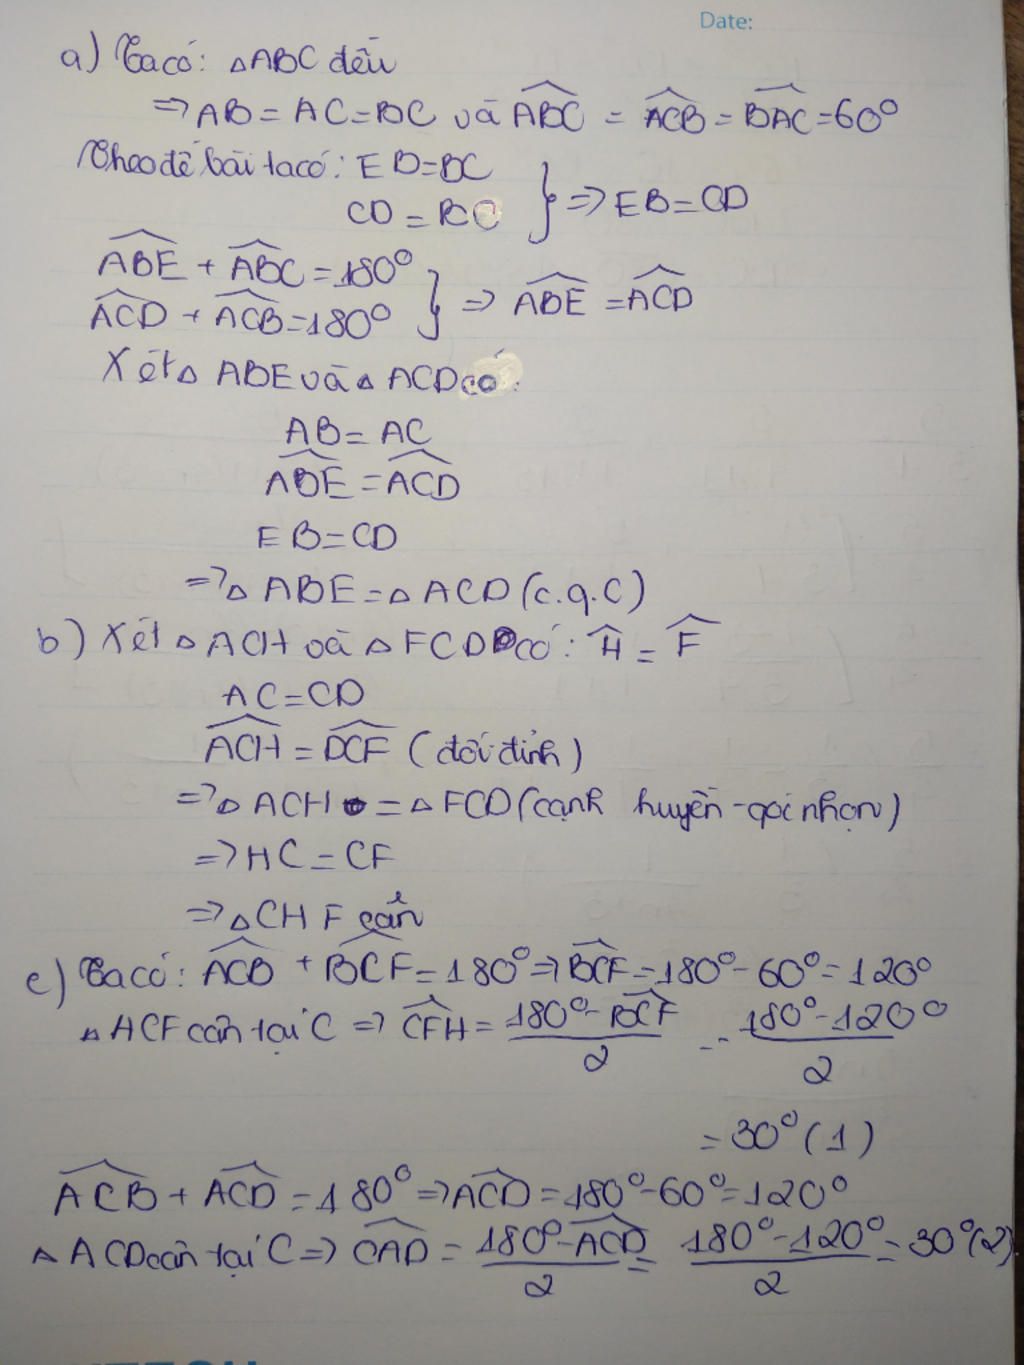 Date:
a) Ta có: △ABC đều
=> AB = AC = BC và ∠ABC = ∠ACB = ∠BAC = 60°
Theo đề bài ta có: EB = BC
CD = BC } => EB = CD
∠ABE + ∠ABC = 180°
∠ACD + ∠ACB = 180° } => ∠ABE = ∠ACD
Xét △ ABE và △ ACD có:
AB = AC
∠ABE = ∠ACD
EB = CD
=> △ ABE = △ ACD (c.g.c)
b) Xét △ ACH và △ FCD có: ∠H = ∠F
AC = CD
∠ACH = ∠DCF (đối đỉnh)
=> △ ACH = △ FCD (cạnh huyền - góc nhọn)
=> HC = CF
=> △ CHF cân
c) Ta có: ∠ACB + ∠BCF = 180° => ∠BCF = 180° - 60° = 120°
△ HCF cân tại C => ∠CFH = (180° - ∠BCF)/2 = (180° - 120°)/2
= 30° (1)
∠ACB + ∠ACD = 180° => ∠ACD = 180° - 60° = 120°
△ ACD cân tại C => ∠CAD = (180° - ∠ACD)/2 = (180° - 120°)/2 = 30° (2)